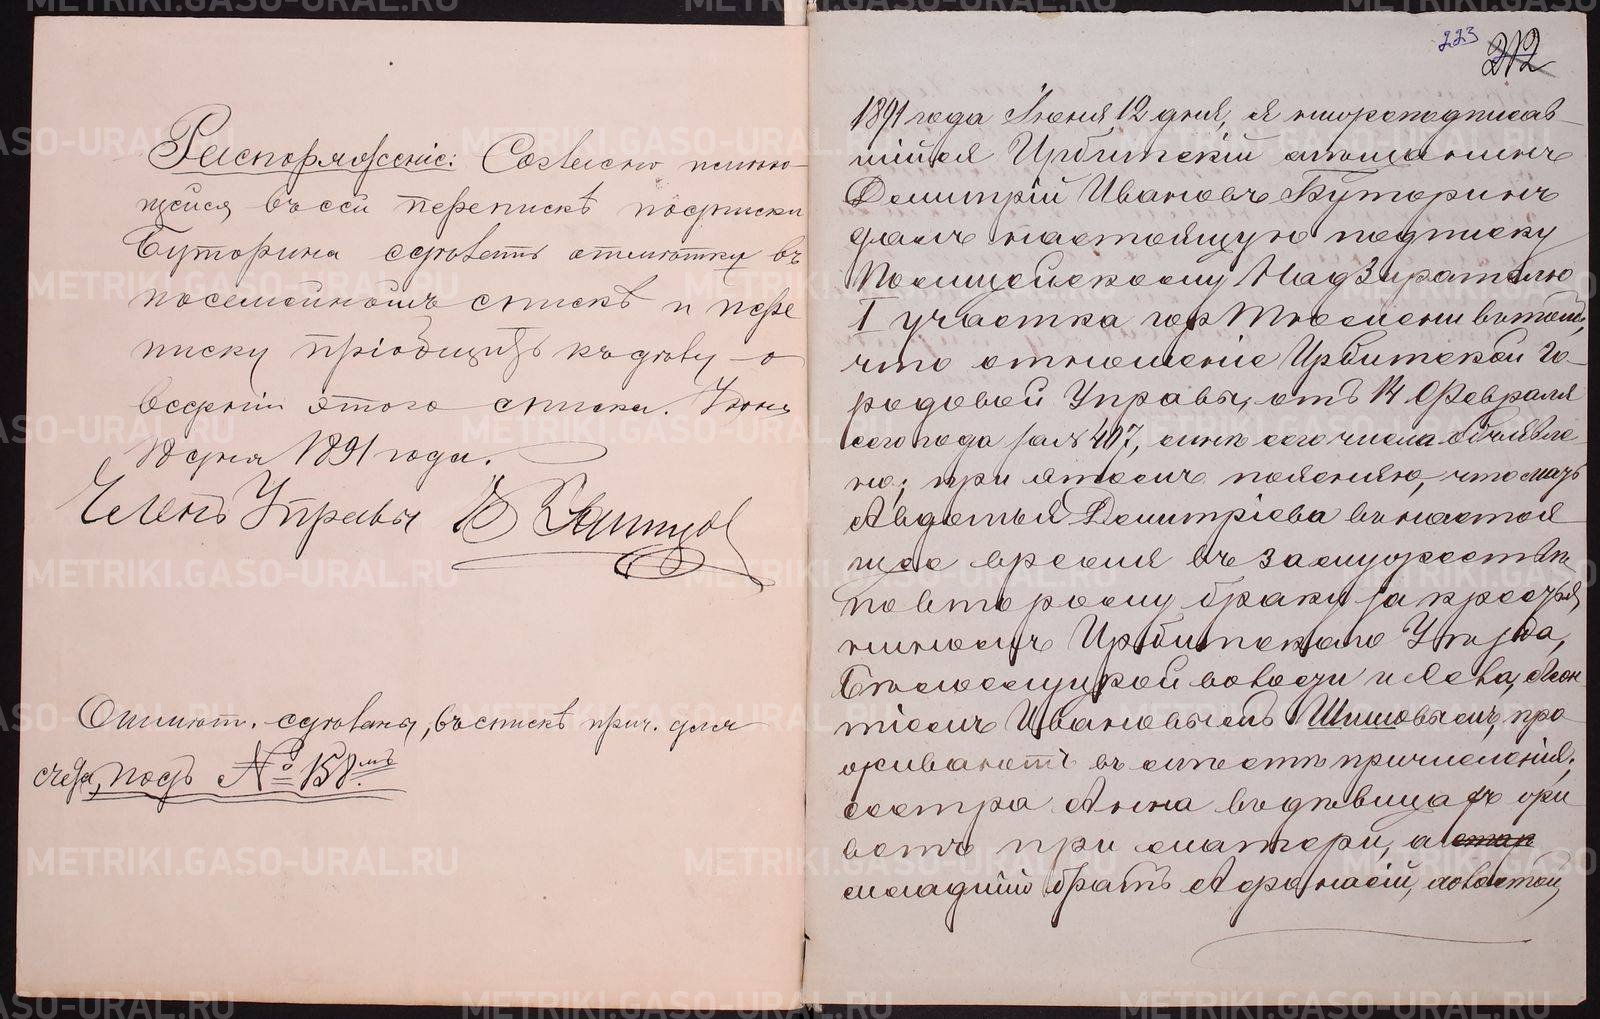 Распоряженіе: Согласно имѣю-
щейся въ сей перепискѣ подписки
Буторина сдѣлать отмѣтку въ
посемейномъ спискѣ и пере
писку пріобщить къ дѣлу о
веденіи этого списка. Іюня
18 дня 1891 года.
Членъ Управы
Отмѣт. сдѣланы, въ спискѣ прич. для
счета, подъ № 158мъ
223
212
1891 года Іюня 12 дня, я нижеподписав-
шійся Ирбитскій мѣщанинъ
Дмитрій Ивановъ Буторинъ
далъ настоящую подписку
Полицейскому Надзирателю
I участка гор Тюмени въ томъ,
что отношеніе Ирбитской Го-
родовой Управы, отъ 14 Февраля
сего года за № 407, мнѣ сего числа объявле-
но; при этомъ поясняю, что мать
Авдотья Дмитріева въ настоя
щее время въ замужествѣ
по второму браку за крестья
ниномъ Ирбитскаго Уѣзда,
Бѣлослудской волости и села, Леон
тіемъ Ивановымъ Шишовымъ, про
живаютъ въ мѣстѣ причисленія;
сестра Анна въ дѣвицахъ жи
ветъ при матери, а
младшій братъ Афонасій, холостой,